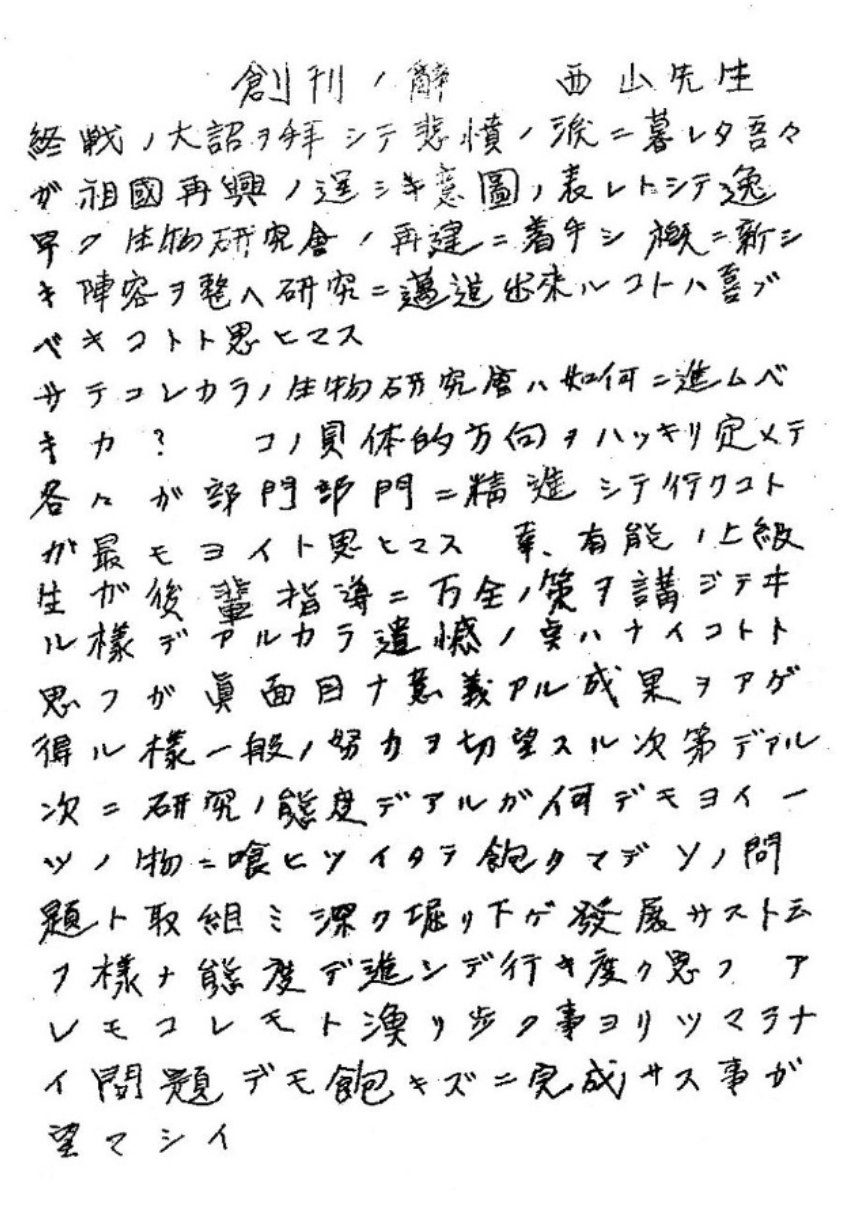 創刊ノ辭　西山先生
終戦ノ大詔ヲ拝シテ悲憤ノ涙ニ暮レタ吾々
ガ祖國再興ノ逞シキ意圖ノ表レトシテ逸
早ク生物研究會ノ再建ニ着手シ概ニ新シ
キ陣容ヲ整ヘ研究ニ邁進出来ルコトハ喜ブ
ベキコトト思ヒマス
サテコレカラノ生物研究會ハ如何ニ進ムベ
キカ?　コノ具体的方向ヲハッキリ定メテ
各々ガ部門部門ニ精進シテ行クコト
ガ最モヨイト思ヒマス　幸、有能ノ上級
生ガ後輩指導ニ万全ノ策ヲ講ジテヰ
ル様デアルカラ遺憾ノ点ハナイコトト
思フガ眞面目ナ意義アル成果ヲアゲ
得ル様一般ノ努力ヲ切望スル次第デアル
次ニ研究ノ態度デアルガ何デモヨイ一
ツノ物ニ喰ヒツイタラ飽クマデソノ問
題ト取組ミ深ク堀リ下ゲ發展サスト云
フ様ナ態度デ進ンデ行キ度ク思フ　ア
レモコレモト漁リ歩ク事ヨリツマラナ
イ問題デモ飽キズニ完成サス事ガ
望マシイ